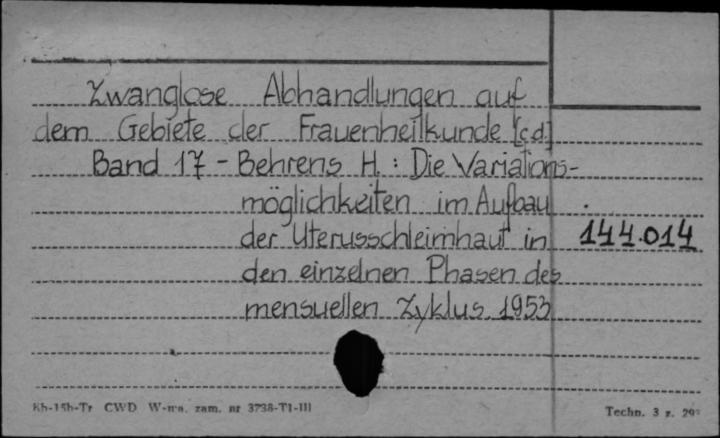 Zwanglose Abhandlungen auf
dem Gebiete der Frauenheilkunde [c.d.]
Band 17 - Behrens H. : Die Variations-
möglichkeiten im Aufbau
der Uterusschleimhaut in
144.014
den einzelnen Phasen des
mensuellen Zyklus 1953
Kh-15b-Tr CWD W-wa. zam. nr 3738-T1-III
Techn. 3 z. 29